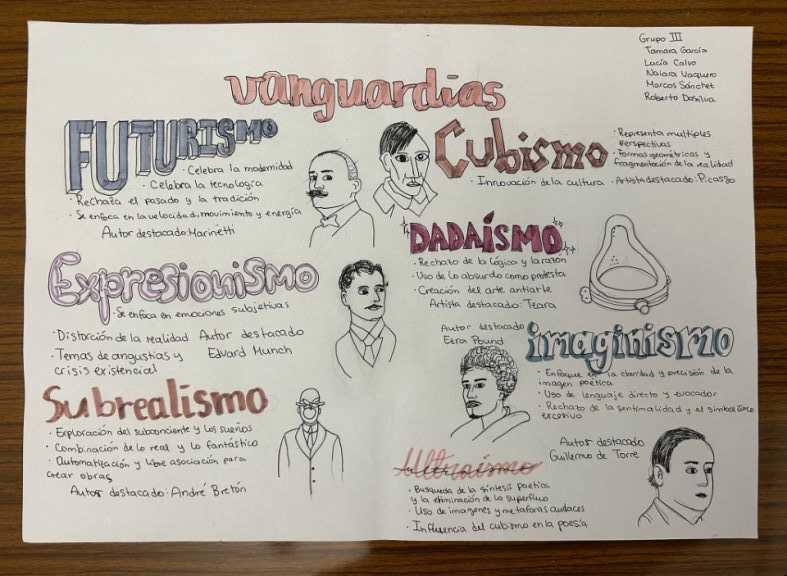 Grupo III
Tamara García
Lucía Calvo
Naiara Vaquero
Marcos Sánchet
Roberto Dasilva
vanguardias
FUTURISMO
· Celebra la modernidad
· Celebra la tecnologíca
· Rechaza el pasado y la tradición
· Se enfoca en la velocidad, movimiento y energía
Autor destacado: Marinetti
Cubismo
· Representa multiples
perspectivas
· Formas geométricas y
fragmentación de la realidad
· Innovación de la cultura
· Artista destacado: Picasso
Expresionismo
· Se enfoca en emociones subjetivas
· Distorción de la realidad
· Temas de angustias y
crisis existencial
Autor destacado
Edvard Munch
DADAÍSMO
· Rechazo de la lógica y la razón
· Uso de lo absurdo como protesta
· Creación del arte antiarte
Artista destacado: Tzara
Subrealismo
· Exploración del subconciente y los sueños
· Combinación de lo real y lo fantástico
· Automatización y libre asociación para
crear obras
Autor destacado: André Bretón
Autor destacado
Ezra Pound
imaginismo
· Enfoque en la claridad y precisión de la
imagen poética
· Uso de lenguaje directo y evocador
· Rechazo de la sentimalidad y el simbolismo
excesivo
Ultraísmo
· Busqueda de la síntesis poetica
y la eliminación de lo superfluo
· Uso de imagenes y metaforas audaces
· Influencia del cubismo en la poesía
Autor destacado
Guillermo de Torre